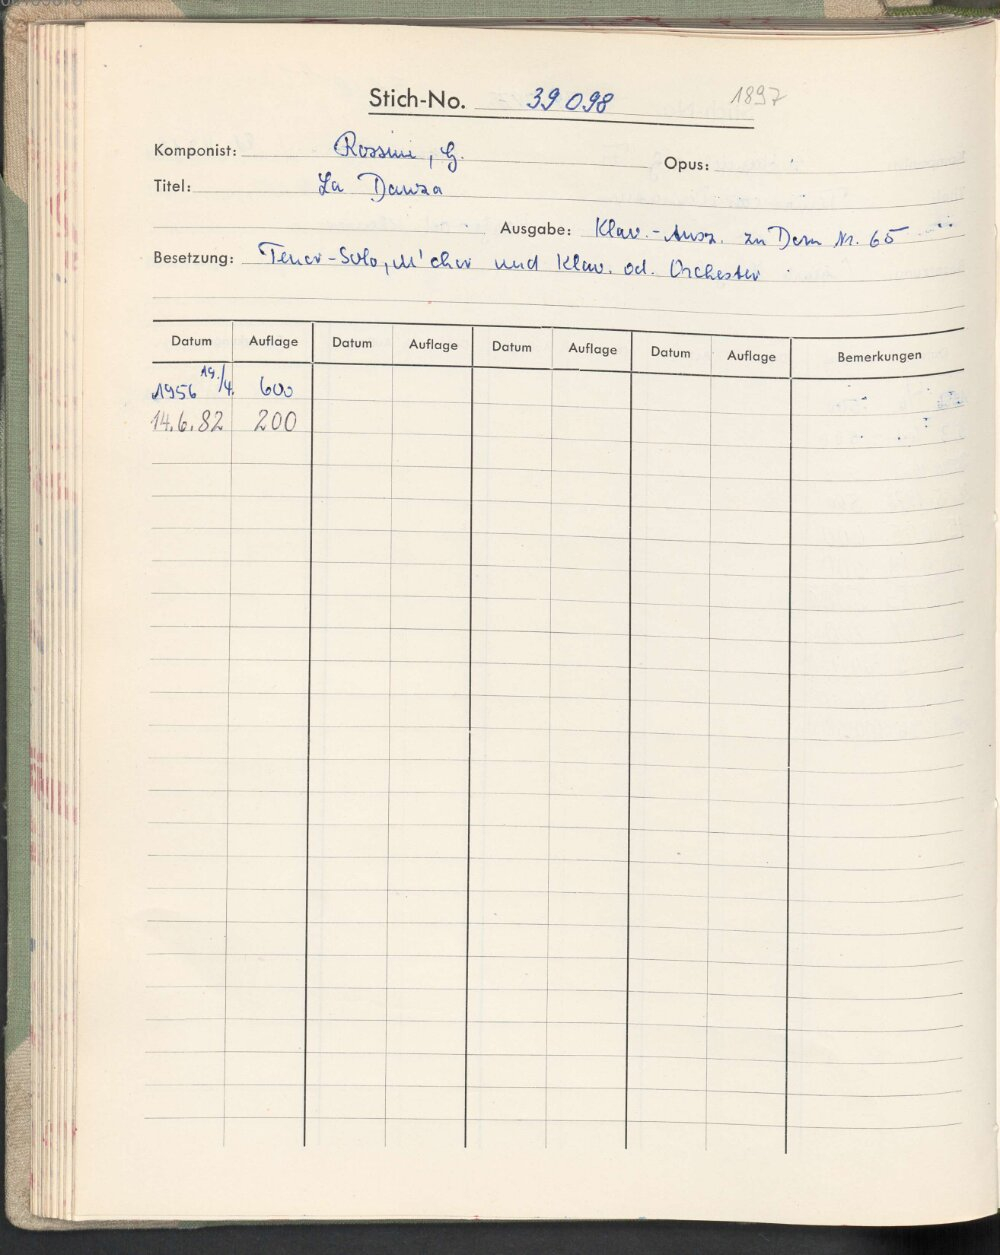 Stich-No. 39098 1897
Komponist: Rossini, G. Opus:
Titel: La Danza
Ausgabe: Klav.-Ausz. zu Dom Nr. 65
Besetzung: Tenor-Solo, M'chor und Klav. od. Orchester
Datum Auflage Datum Auflage Datum Auflage Datum Auflage Bemerkungen
1956 19./4. 600
14.6.82 200